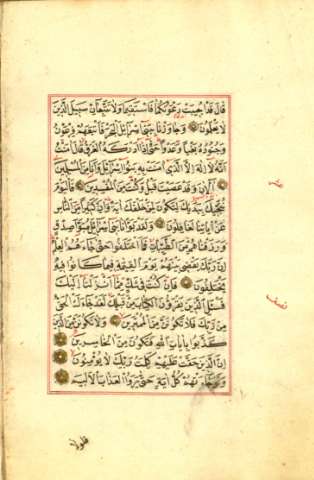 قال قد اجيبت دعوتكما فاستقيما ولا تتبعان سبيل الذين
لا يعلمون وجاوزنا ببني اسرائل البحر فاتبعهم فرعون
وجنوده بغيا وعدوا حتى اذا ادركه الغرق قال امنت
انه لا اله الا الذي امنت به بنوا اسرائل وانا من المسلمين
آلان وقد عصيت قبل وكنت من المفسدين فاليوم
ننجيك ببدنك لتكون لمن خلفك اية وان كثيرا من الناس
عن اياتنا لغافلون ولقد بوانا بني اسرائل مبوا صدق
ورزقناهم من الطيبات فما اختلفوا حتى جاءهم العلم
ان ربك يقضي بينهم يوم القيمة فيما كانوا فيه
يختلفون فان كنت في شك مما انزلنا اليك
فسئل الذين يقرؤن الكتاب من قبلك لقد جاءك الحق
من ربك فلا تكونن من الممترين ولا تكونن من الذين
كذبوا بايات الله فتكون من الخاسرين
ان الذين حقت عليهم كلمت ربك لا يؤمنون
ولو جاءتهم كل اية حتى يروا العذاب الاليم
نصف
فلولا